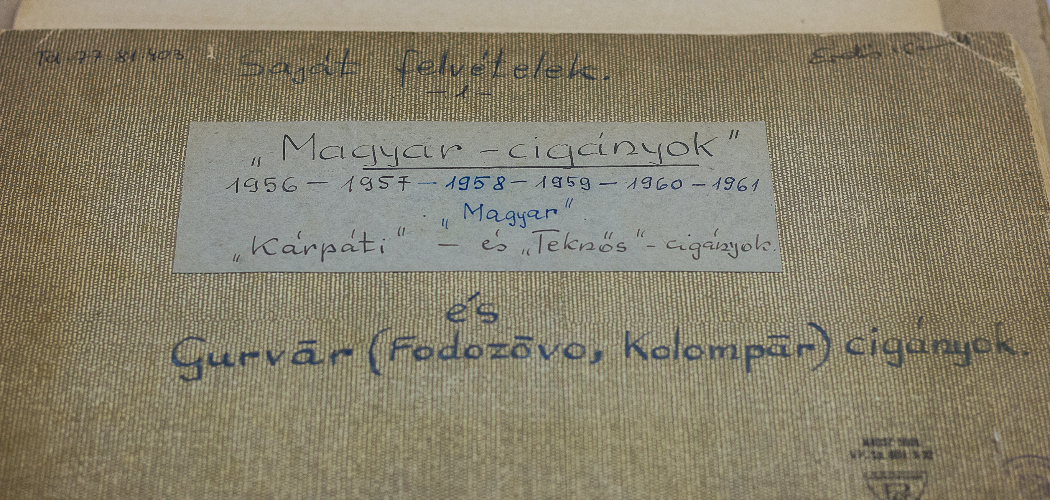 Saját felvételek.
- 1 -
„Magyar - cigányok"
1956 - 1957 - 1958 - 1959 - 1960 - 1961
„Magyar"
„Kárpáti" - és „Teknős" - cigányok.
és
Gurvār (Fodozōvo, Kolompār) cigányok.